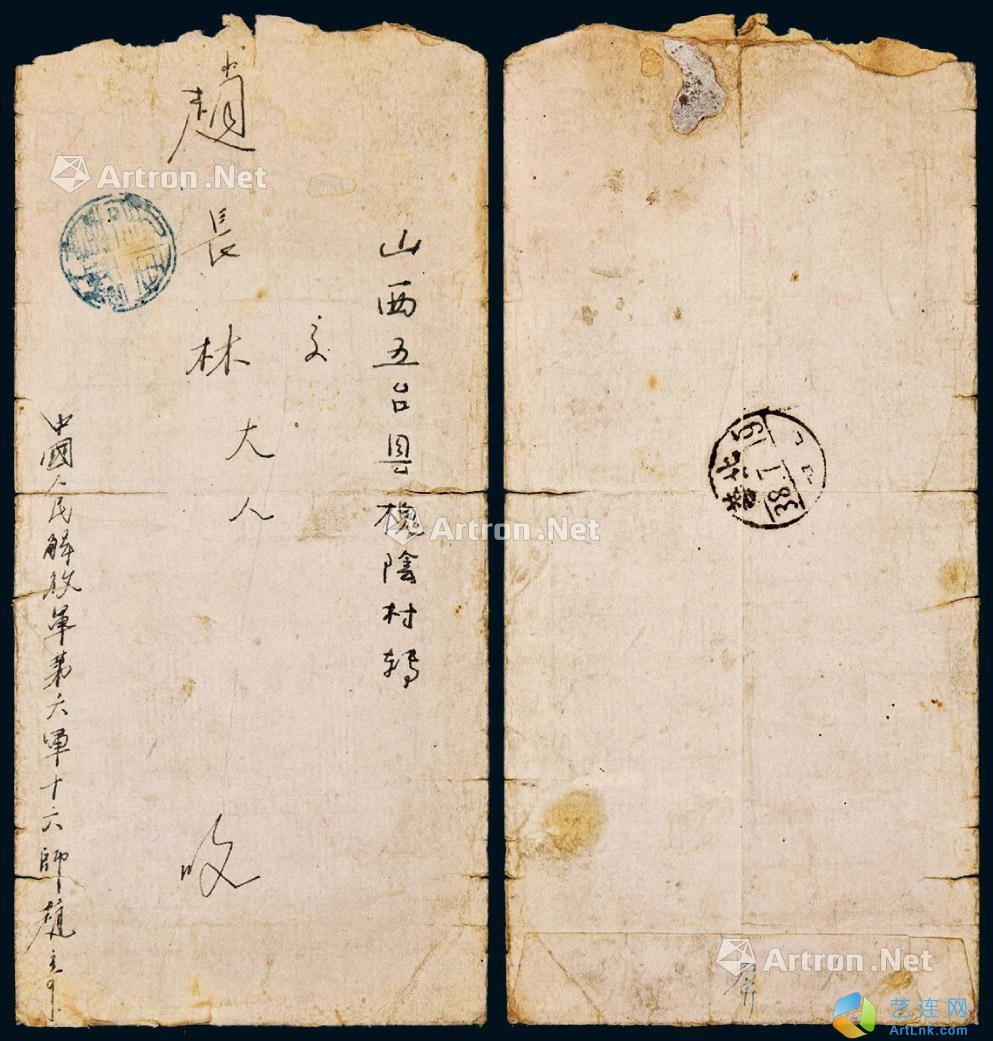 山西五台县槐陰村轉
交
趙長林大人
收
中國人民解放軍第六軍十六師趙
晋北
19
1
38
Artron.Net
Artron.Net
Artron.Net
Artron.Net
艺连网
ArtLnk.com